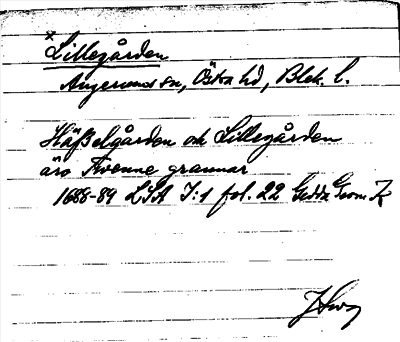 × Lillegården
Augerums sn, Östra hd, Blek. l.
Häßelgården och Lillegården
äro Tvenne grannar
1688-89 LSA I:1 fol. 22 Gedda Geom. K